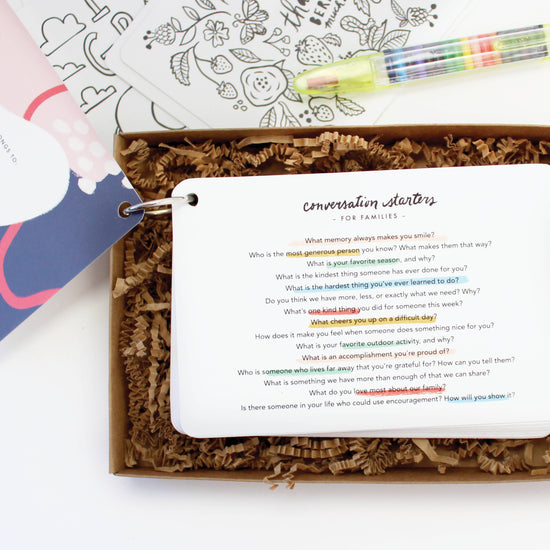 tha
BERR
much
ONGS TO:
conversation starters
- FOR FAMILIES -
What memory always makes you smile?
Who is the most generous person you know? What makes them that way?
What is your favorite season, and why?
What is the kindest thing someone has ever done for you?
What is the hardest thing you've ever learned to do?
Do you think we have more, less, or exactly what we need? Why?
What's one kind thing you did for someone this week?
What cheers you up on a difficult day?
How does it make you feel when someone does something nice for you?
What is your favorite outdoor activity, and why?
What is an accomplishment you're proud of?
Who is someone who lives far away that you're grateful for? How can you tell them?
What is something we have more than enough of that we can share?
What do you love most about our family?
Is there someone in your life who could use encouragement? How will you show it?